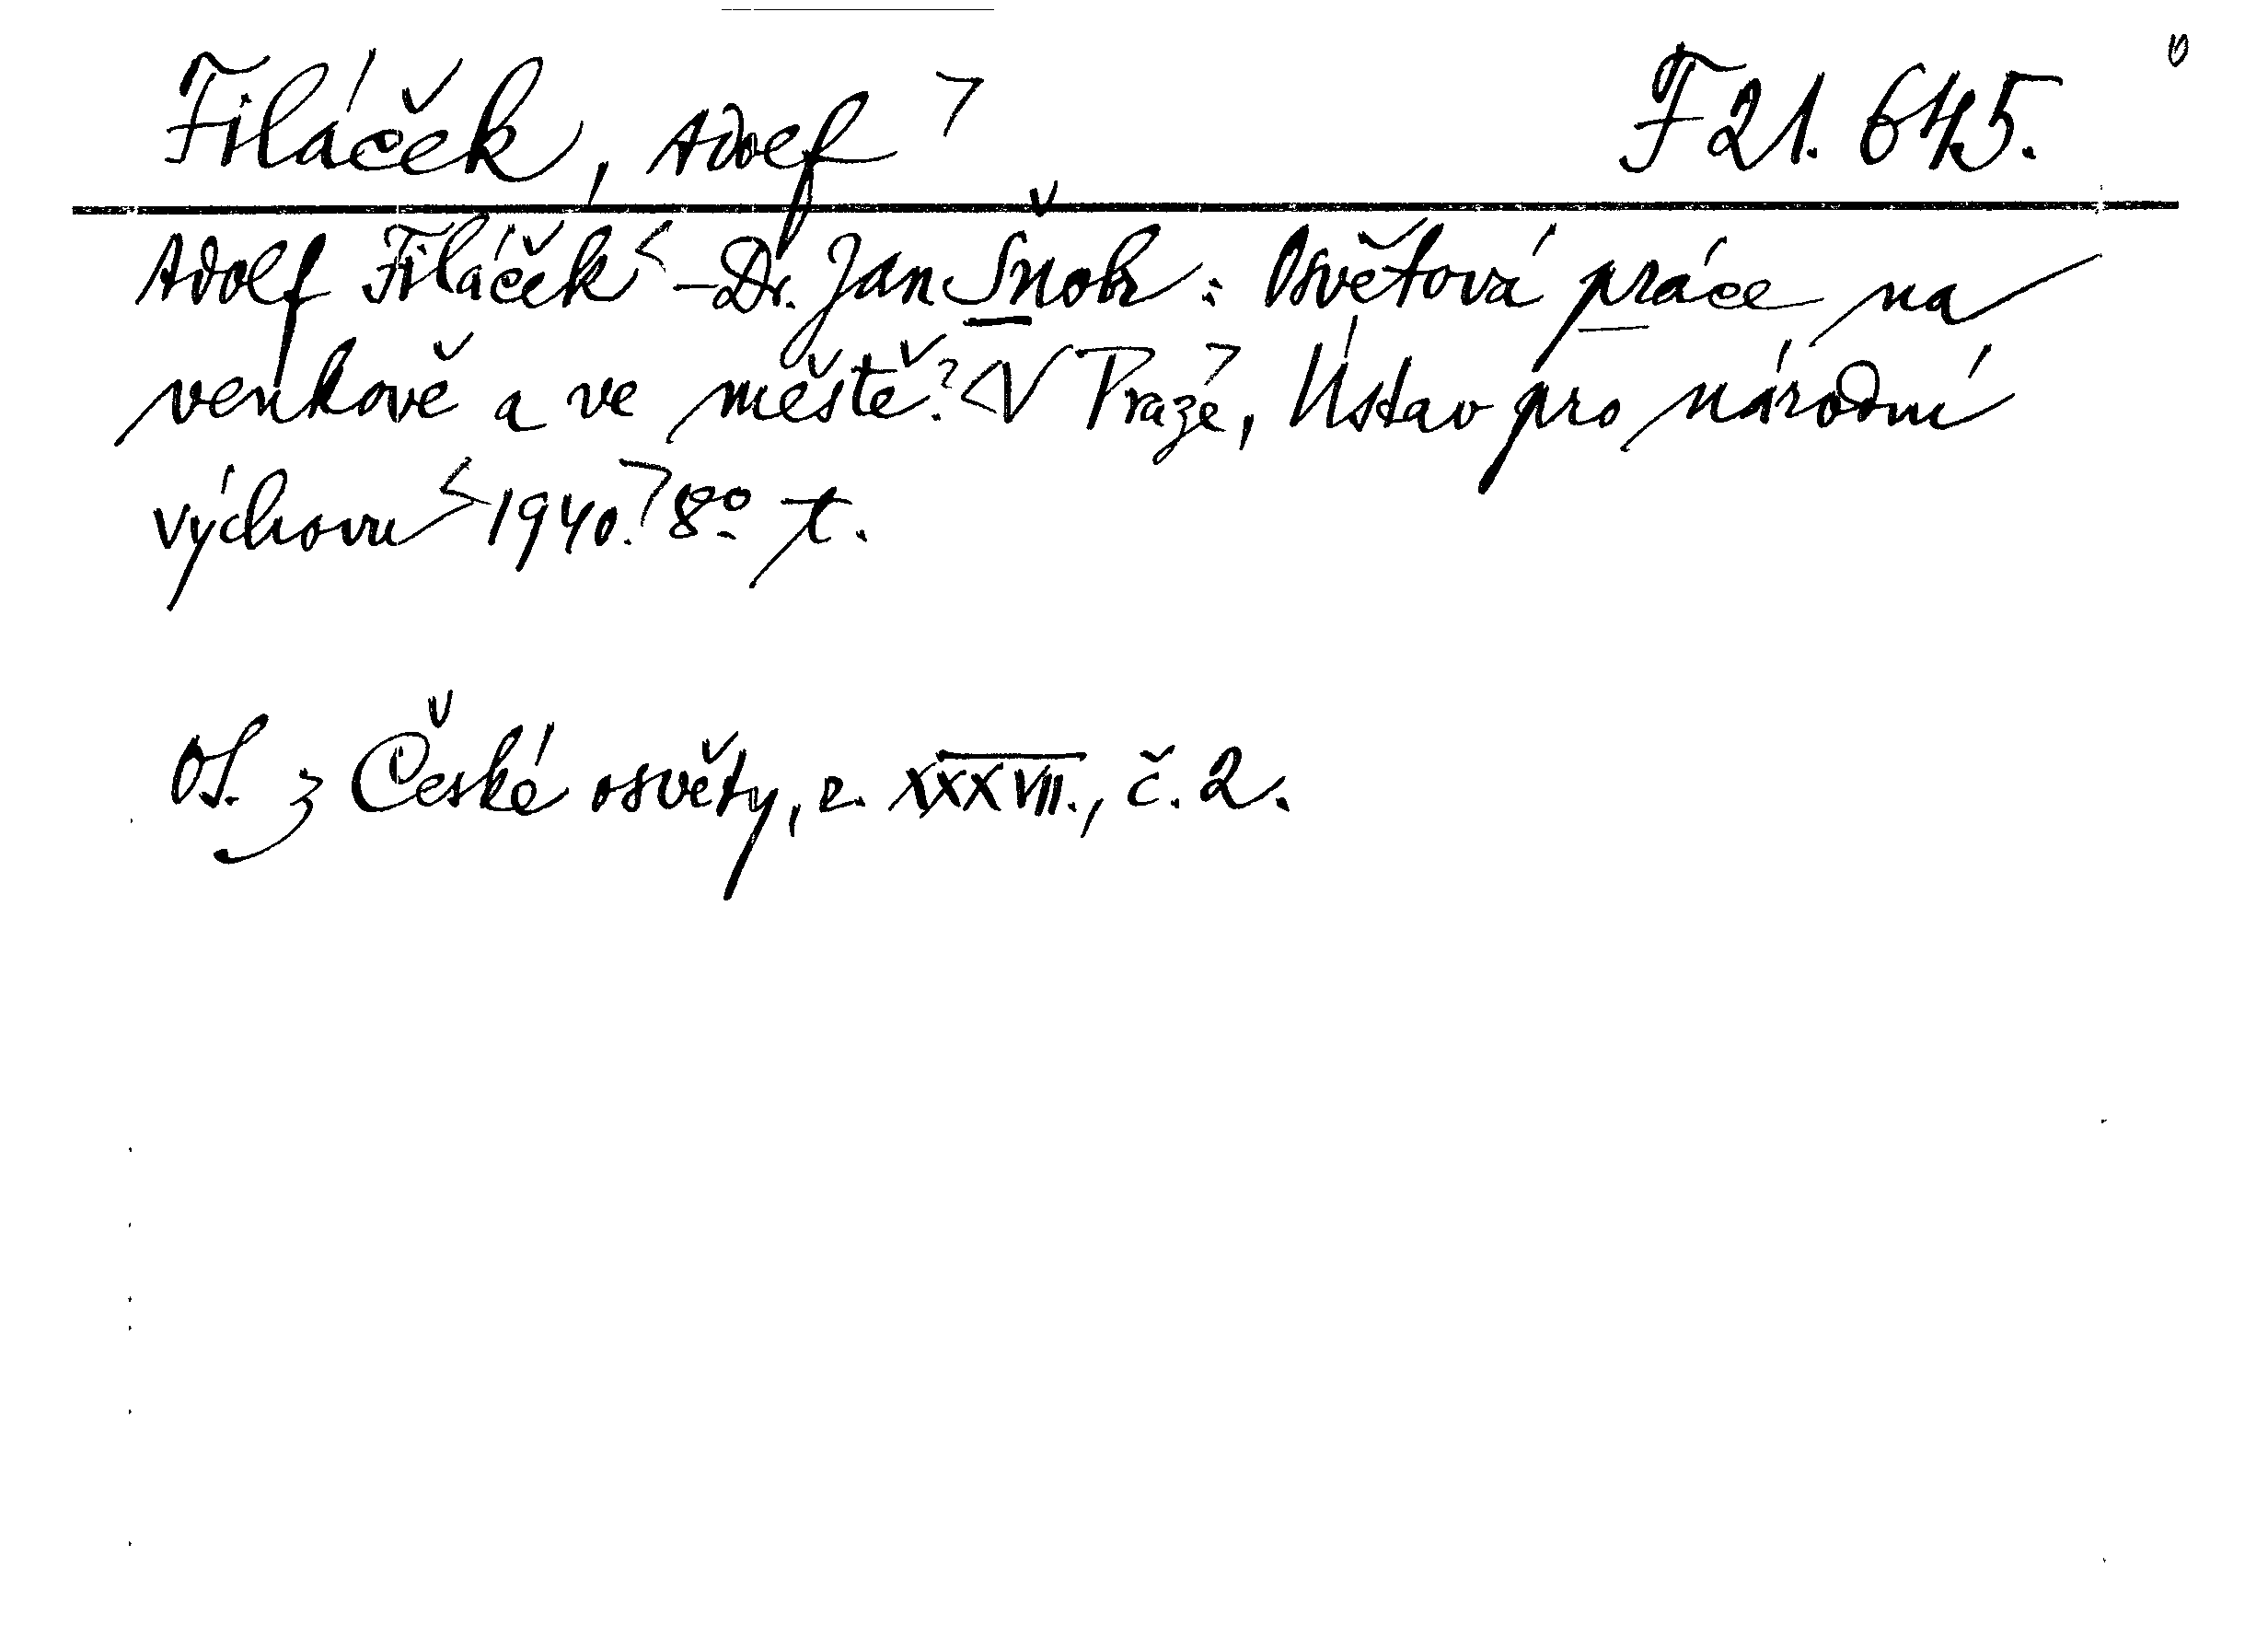 Filáček, Adolf > F 21.645.
Adolf Filáček < - Dr. Jan Šnobr: Osvětová práce na
venkově a ve městě? < V Praze >, Ústav pro národní
výchovu < 1940. > 8° t.
Ot. z České osvěty, r. XXXVII., č. 2.